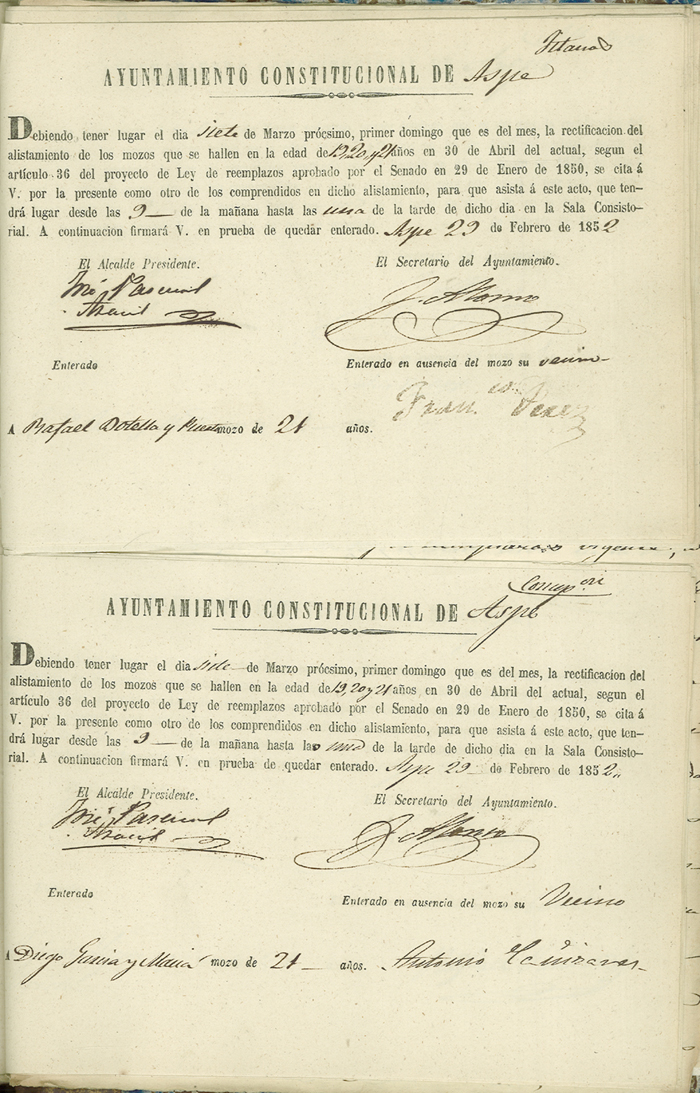 AYUNTAMIENTO CONSTITUCIONAL DE Aspe
Debiendo tener lugar el dia siete de Marzo prócsimo, primer domingo que es del mes, la rectificacion del
alistamiento de los mozos que se hallen en la edad de 19, 20 y 21 años en 30 de Abril del actual, segun el
artículo 36 del proyecto de Ley de reemplazos aprobado por el Senado en 29 de Enero de 1850, se cita á
V. por la presente como otro de los comprendidos en dicho alistamiento, para que asista á este acto, que ten-
drá lugar desde las 9 de la mañana hasta las una de la tarde de dicho dia en la Sala Consisto-
rial. A continuacion firmará V. en prueba de quedar enterado. Aspe 29 de Febrero de 1852
El Alcalde Presidente. El Secretario del Ayuntamiento.
José Pascual J. Alonso
Enterado Enterado en ausencia del mozo su vecino
Fran.co Perez
A Rafael Botella y mozo de 21 años.
AYUNTAMIENTO CONSTITUCIONAL DE Aspe
Debiendo tener lugar el dia siete de Marzo prócsimo, primer domingo que es del mes, la rectificacion del
alistamiento de los mozos que se hallen en la edad de 19, 20 y 21 años en 30 de Abril del actual, segun el
artículo 36 del proyecto de Ley de reemplazos aprobado por el Senado en 29 de Enero de 1850, se cita á
V. por la presente como otro de los comprendidos en dicho alistamiento, para que asista á este acto, que ten-
drá lugar desde las 9 de la mañana hasta las una de la tarde de dicho dia en la Sala Consisto-
rial. A continuacion firmará V. en prueba de quedar enterado. Aspe 29 de Febrero de 1852.
El Alcalde Presidente. El Secretario del Ayuntamiento.
José Pascual J. Alonso
Enterado Enterado en ausencia del mozo su Vecino
A Diego Garcia y mozo de 21 años. Antonio Cañizares